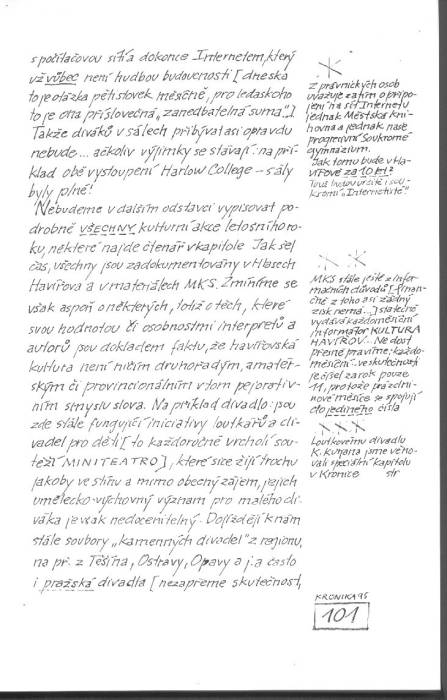 s počítačovou sítí a dokonce Internetem, který
už vůbec není hudbou budoucnosti [dneska
to je otázka pětistovek měsíčně, pro ledaskoho
to je ona příslovečná „zanedbatelná suma“.]
Takže diváků v sálech přibývat asi opravdu
nebude... ačkoliv výjimky se stávají: na pří-
klad obě vystoupení Harlow College – sály
byly plné!
Nebudeme v dalším odstavci vypisovat po-
drobně všechny kulturní akce letošního ro-
ku, některé najde čtenář v kapitole Jak šel
čas, všechny jsou zadokumentovány v Hlasech
Havířova a v materiálech MKS. Zmíníme se
však aspoň o některých, totiž o těch, které
svou hodnotou či osobnostmi interpretů a
autorů jsou dokladem faktu, že havířovská
kultura není ničím druhořadým, amatér-
ským či provincionálním v tom pejorativ-
ním smyslu slova. Na příklad divadlo: jsou
zde stále fungující iniciativy loutkářů a di-
vadel pro děti [to každoročně vrcholí sou-
těží MINITEATRO], které sice žijí trochu
jakoby ve stínu a mimo obecný zájem, jejich
umělecko-výchovný význam pro malého di-
váka je však nedocenitelný. Dojíždějí k nám
stále soubory „kamenných divadel“ z regionu,
na př. z Těšína, Ostravy, Opavy a j. a často
i pražská divadla [nezapřeme skutečnost,
Z právnických osob
uvažuje zatím o připo-
jení na síť Internetu
jednak Městská kni-
hovna a jednak naše
progresivní Soukromé
gymnázium.
Jak tomu bude v Ha-
vířově za 10 let?
To už budou určitě i sou-
kromí „Internetisté“
MKS stále ještě z infor-
mačních důvodů [finan-
čně z toho asi žádný
zisk nemá...] statečně
vydává každoměsíční
informátor KULTURA
HAVÍŘOV... Ne dost
přesně pravíme: každo-
měsíční – ve skutečnosti
jej šel za rok pouze
11, protože prázdni-
nové měsíce se spojují
do jediného čísla
Loutkovému divadlu
K. Kunjana jsme věno-
vali speciální kapitolu
v Kronice str
KRONIKA 95
101